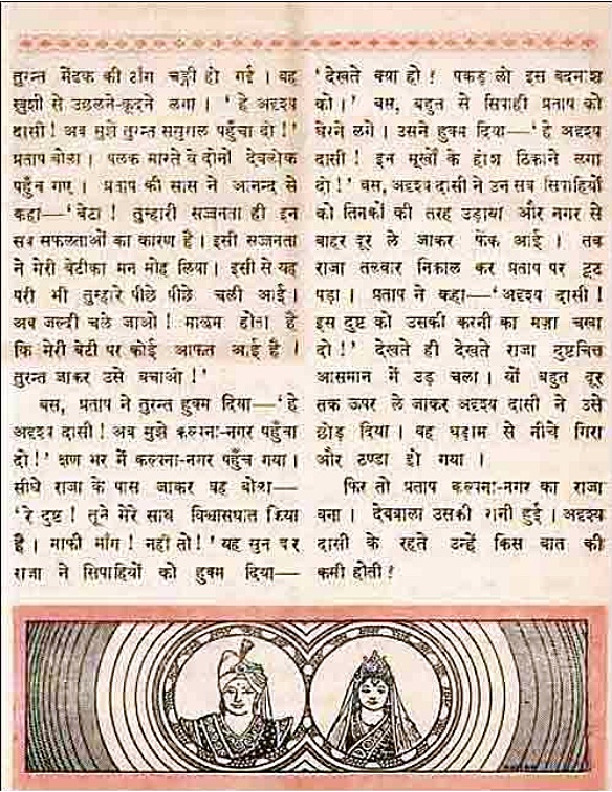 तुरन्त मेंढक की टाँग चङ्गी हो गई । वह
खुशी से उछलने-कूदने लगा । ' हे अदृश्य
दासी ! अब मुझे तुरन्त ससुराल पहुँचा दो !'
प्रताप बोला । पलक मारते वे दोनों देवलोक
पहुँच गए । प्रताप की सास ने आनन्द से
कहा—' बेटा ! तुम्हारी सज्जनता ही इन
सब सफलताओं का कारण है । इसी सज्जनता
ने मेरी बेटीका मन मोह लिया । इसी से यह
परी भी तुम्हारे पीछे पीछे चली आई ।
अब जल्दी चले जाओ ! मालूम होता है
कि मेरी बेटी पर कोई आफत आई है ।
तुरन्त जाकर उसे बचाओ !'
बस, प्रताप ने तुरन्त हुक्म दिया—' हे
अदृश्य दासी ! अब मुझे कल्पना-नगर पहुँचा
दो !' क्षण भर में कल्पना-नगर पहुँच गया ।
सीधे राजा के पास जाकर वह बोला—
' रे दुष्ट ! तूने मेरे साथ विश्वासघात किया
है । माफी माँग ! नहीं तो !' यह सुन कर
राजा ने सिपाहियों को हुक्म दिया—
' देखते क्या हो ! पकड़ लो इस बदमाश
को ।' बस, बहुत से सिपाही प्रताप को
घेरने लगे । उसने हुक्म दिया—' हे अदृश्य
दासी ! इन मूर्खों के होश ठिकाने लगा
दो !' बस, अदृश्य दासी ने उन सब सिपाहियों
को तिनकों की तरह उड़ाया और नगर से
बाहर दूर ले जाकर फेंक आई । तब
राजा तलवार निकाल कर प्रताप पर टूट
पड़ा । प्रताप ने कहा—' अदृश्य दासी !
इस दुष्ट को उसकी करनी का मज़ा चखा
दो !' देखते ही देखते राजा दुष्टचित्त
आसमान में उड़ चला । यों बहुत दूर
तक ऊपर ले जाकर अदृश्य दासी ने उसे
छोड़ दिया । वह धड़ाम से नीचे गिरा
और ठण्डा हो गया ।
फिर तो प्रताप कल्पना-नगर का राजा
बना । देवबाला उसकी रानी हुई । अदृश्य
दासी के रहते उन्हें किस बात की
कमी होती ?